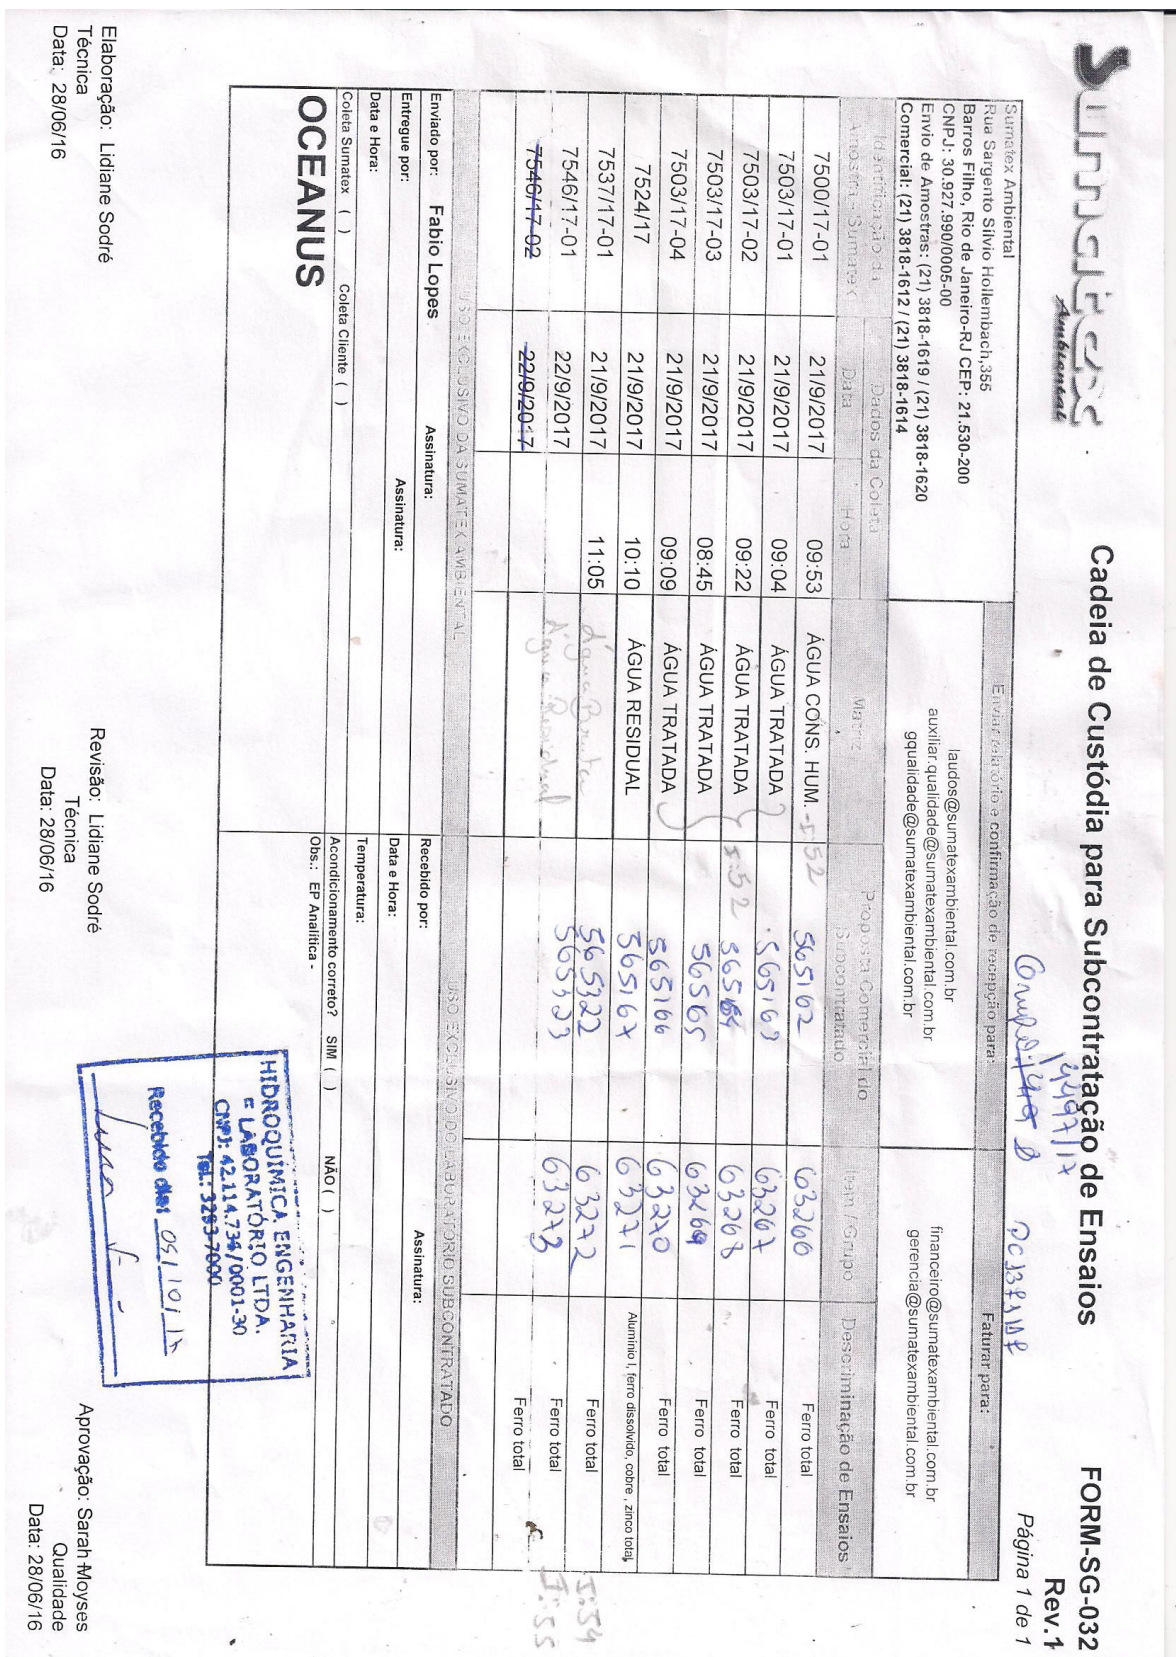 Sumatex
Ambiental
Cadeia de Custódia para Subcontratação de Ensaios
FORM-SG-032
Rev.1
Página 1 de 1
4497/17
Sumatex Ambiental
Rua Sargento Silvio Hollembach,355
Barros Filho, Rio de Janeiro-RJ CEP: 21.530-200
CNPJ: 30.927.990/0005-00
Envio de Amostras: (21) 3818-1619 / (21) 3818-1620
Comercial: (21) 3818-1612 / (21) 3818-1614
Enviar relatório e confirmação de recepção para:
laudos@sumatexambiental.com.br
auxiliar.qualidade@sumatexambiental.com.br
gqualidade@sumatexambiental.com.br
Faturar para:
financeiro@sumatexambiental.com.br
gerencia@sumatexambiental.com.br
Identificação da Amostra - Sumatex
Dados da Coleta
Data Hora
Matriz
Proposta Comercial do Subcontratado
Item / Grupo
Descriminação de Ensaios
7500/17-01 21/9/2017 09:53 ÁGUA CONS. HUM. - I:52 565162 63266 Ferro total
7503/17-01 21/9/2017 09:04 ÁGUA TRATADA 565163 63267 Ferro total
7503/17-02 21/9/2017 09:22 ÁGUA TRATADA I:52 565164 63268 Ferro total
7503/17-03 21/9/2017 08:45 ÁGUA TRATADA 56565 63269 Ferro total
7503/17-04 21/9/2017 09:09 ÁGUA TRATADA 565166 63270 Ferro total
7524/17 21/9/2017 10:10 ÁGUA RESIDUAL 565167 63271 Aluminio l, ferro dissolvido, cobre , zinco total,
7537/17-01 21/9/2017 11:05 Água Bruta 565322 63272 Ferro total I:54
7546/17-01 22/9/2017 Água Residual 565323 63273 Ferro total I:55
7546/17-02 22/9/2017 Ferro total
USO EXCLUSIVO DA SUMATEX AMBIENTAL
USO EXCLUSIVO DO LABORATÓRIO SUBCONTRATADO
Enviado por: Fabio Lopes Assinatura:
Recebido por: Assinatura:
Entregue por: Assinatura:
Data e Hora:
Data e Hora:
Temperatura:
Coleta Sumatex ( ) Coleta Cliente ( )
Acondicionamento correto? SIM ( ) NÃO ( )
OCEANUS
Obs.: EP Analítica -
HIDROQUÍMICA ENGENHARIA
E LABORATÓRIO LTDA.
CNPJ: 42.114.734/0001-30
Tel.: 3293-7000
Recebido dia: 05/10/17
Elaboração: Lidiane Sodré
Técnica
Data: 28/06/16
Revisão: Lidiane Sodré
Técnica
Data: 28/06/16
Aprovação: Sarah Moyses
Qualidade
Data: 28/06/16